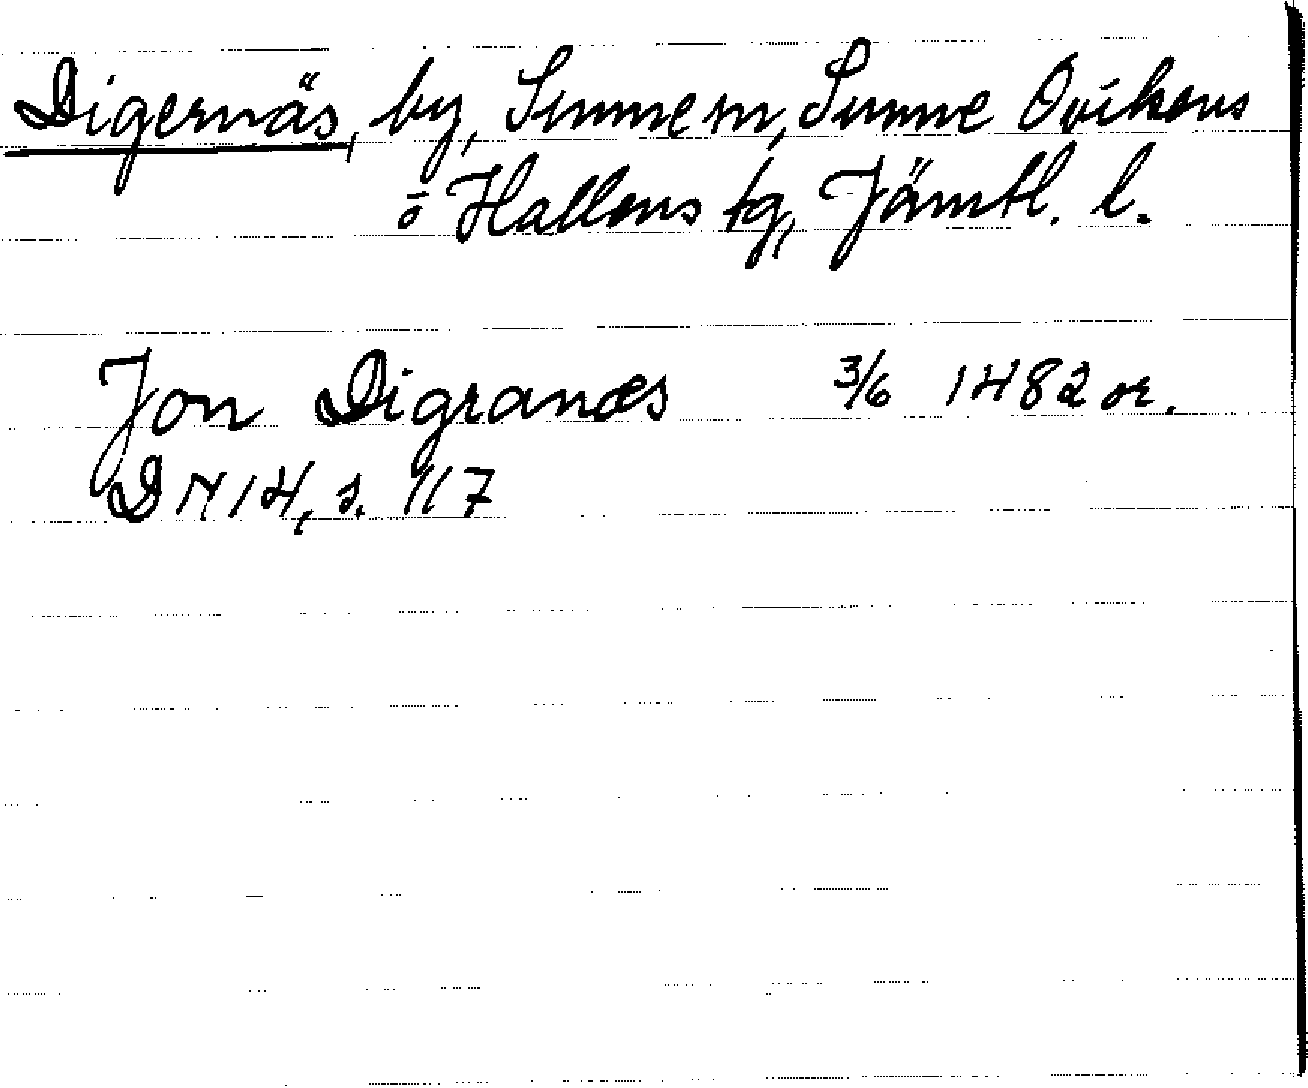 Digernäs, by, Sunne sn, Sunne Ovikens
o Hallens tg, Jämtl. l.
Jon Digranæs 3/6 1482 or.
DN 14, s. 117